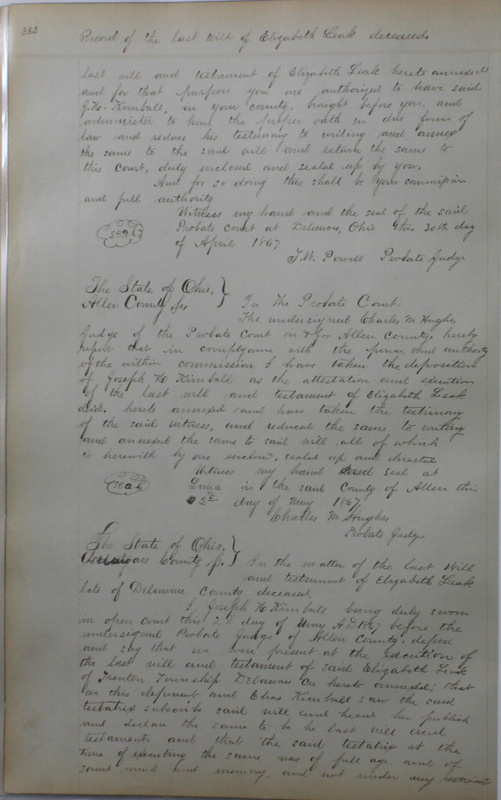 332
Record of the last Will of Elizabeth Leak deceased.
last will and testament of Elizabeth Leak hereto annexed
and for that purpose you are authorized to have said
J. H. Kimball, in your county, brought before you, and
administer to him the proper oath in due form of
law and reduce his testimony to writing and annex
the same to the said will and return the same to
this Court, duly enclosed and sealed up by you.
And for so doing this shall be your commission
and full authority
Witness my hand and the seal of the said
Probate Court at Delaware, Ohio this 20th day
of April 1867
T. W. Powell Probate Judge
The State of Ohio,
Allen County ss, In the Probate Court
The undersigned Charles M Hughes
Judge of the Probate Court in & for Allen County, hereby
report that in compliance with the power and authority
of the within commission I have taken the deposition
of Joseph H Kimball as the attestation and execution
of the last will and testament of Elizabeth Leak
decd. hereto annexed and have taken the testimony
of the said witness, and reduced the same to writing
and annexed the same to said will all of which
is herewith by me enclosed, sealed up and directed
Witness my hand seal at
Seal Lima in the said County of Allen this
2d day of May 1867
Charles M Hughes
Probate Judge
The State of Ohio,
Delaware County ss. In the matter of the last Will
and testament of Elizabeth Leak
late of Delaware County deceased.
I, Joseph H Kimball being duly sworn
in open court this 2d day of May A.D. 1867 before the
undersigned Probate Judge of Allen County, depose
and say that we were present at the execution of
the last will and testament of said Elizabeth Leak
of Trenton Township Delaware Co hereto annexed; that
as this deponent and Elias Kimball saw the said
testatrix subscribe said will and heard her publish
and declare the same to be last will and
testament and that the said testatrix at the
time of executing the same was of full age and of
sound mind and memory, and not under any restraint